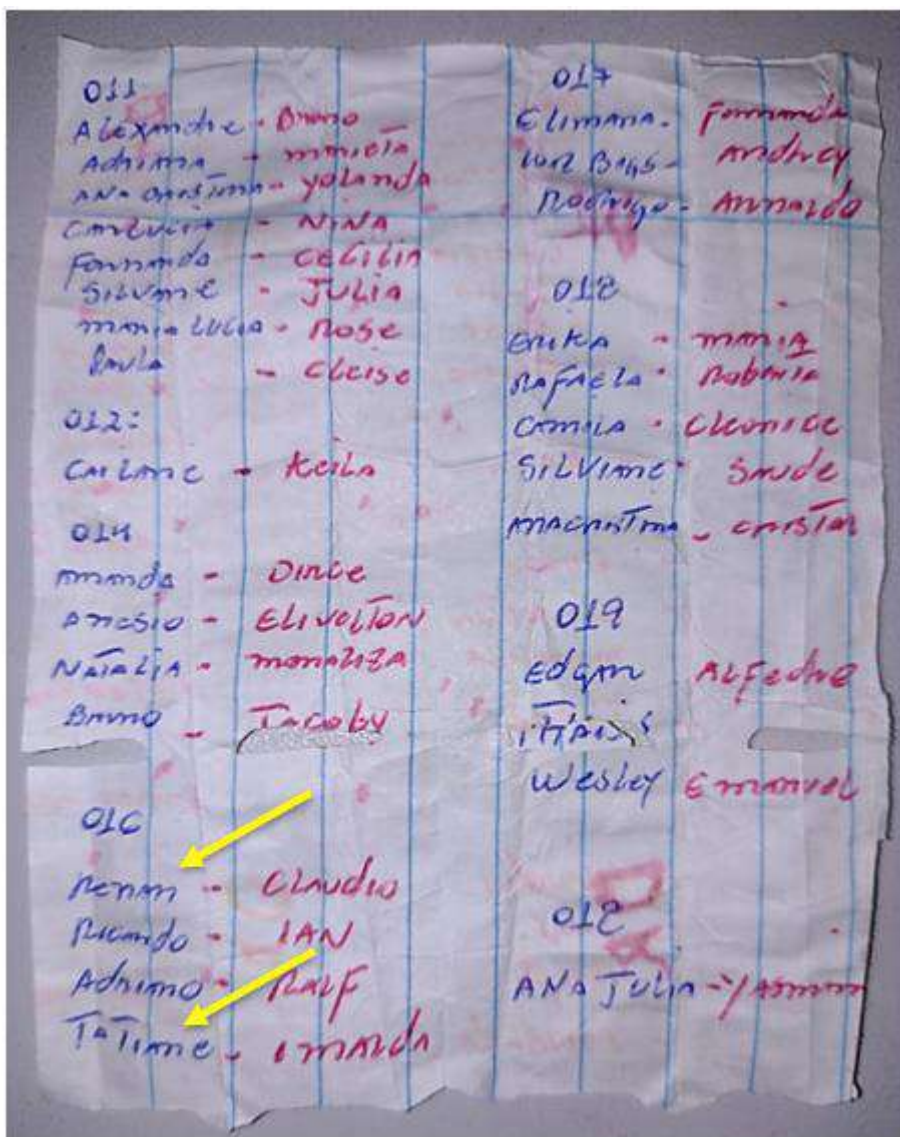 011
Alexandre - Bruno
Adriana - Marieta
ANA CRISTINA - Yolanda
CARLUCIA - NINA
Fernanda - CECILIA
SILVANE - JULIA
MARIA LUCIA - ROSE
PAULA - Cleise
012:
CAILANE - Keila
014
Amanda - DIRCE
ANESIO - ELIVELTON
NATALIA - MONALIZA
BRUNO - Jacoby
016
Renan - CLAUDIO
Ricardo - IAN
Adriano - RALF
TATIANE - IMALDA
017
Elimara - Fernanda
- Andrey
Rodrigo - ARNALDO
018
ERIKA - MARIA
RAFAELA - Roberta
CAMILA - Cleonice
SILVIANE - Saude
ANACRISTINA - CRISTIAN
019
Edgar ALFEDRO
THAIS
Wesley EMANUEL
012
ANA JULIA - YASMIM